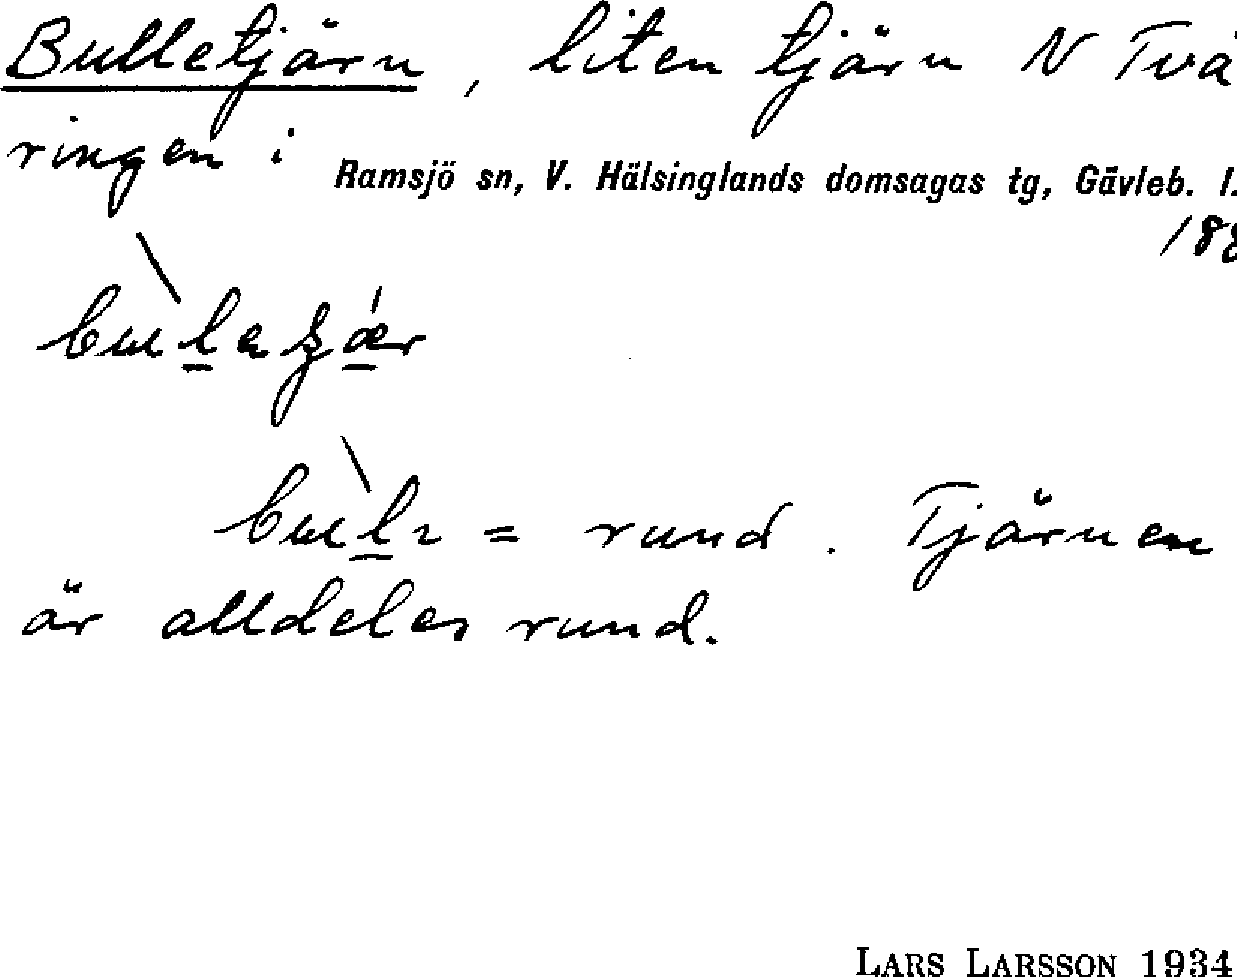 Bulletjärn, liten tjärn N Två
ringen i Ramsjö sn, V. Hälsinglands domsagas tg, Gävleb. l.
bulr = rund. Tjärnen
är alldeles rund.
LARS LARSSON 1934